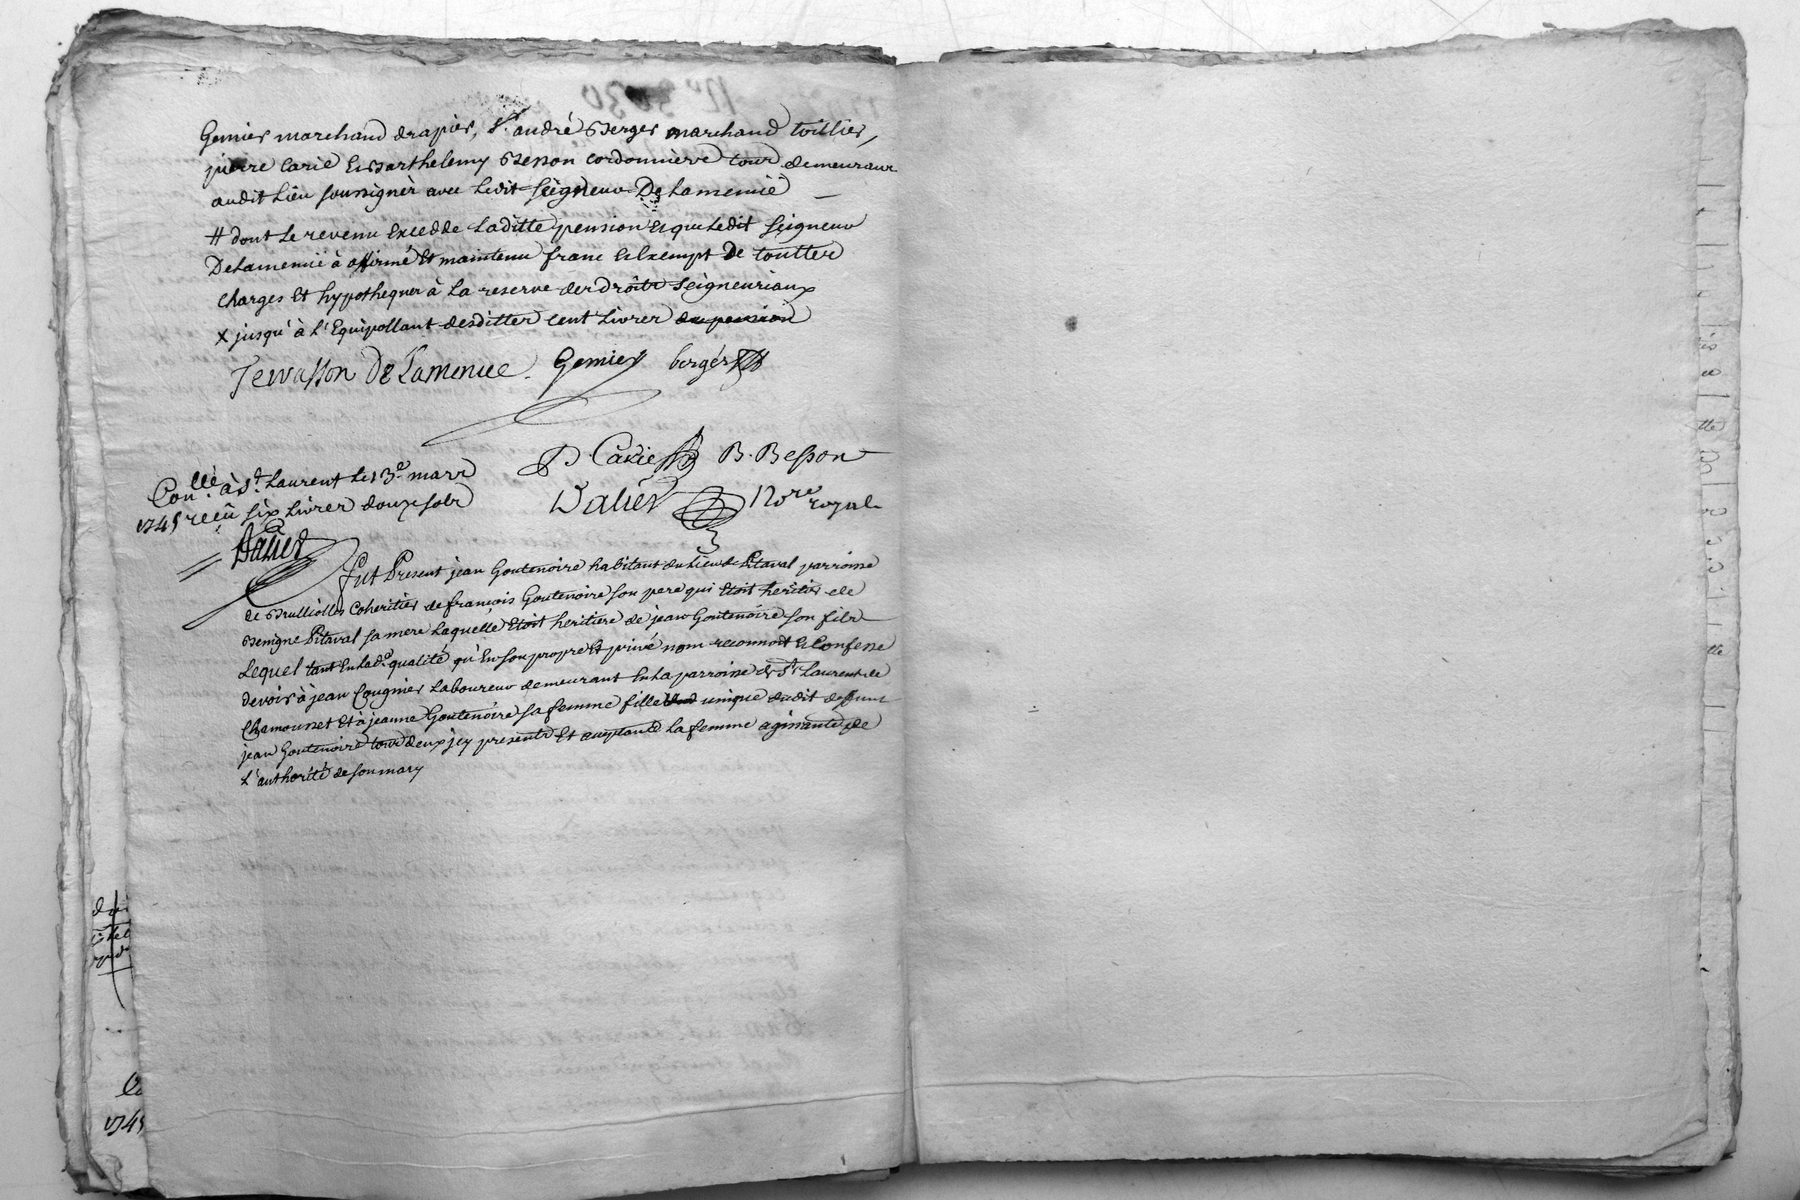 Gemier marchand drapier, Sr. andré Berger marchand toillier,
pierre Carié Et Barthelemy Besson cordonnière tous demeurans
audit Lieu soussignés avec Ledit Seigneur De Lamenüe
# dont Le revenu Excedde Laditte pension Et que Ledit Seigneur
De Lamenüe à affirmé Et maintenu franc Et Exempt De touttes
charges Et hypotheques à La reserve des droits Seigneuriaux
x jusqu'à L'Equipollant desdittes cent Livres de pension
De Lamenüe Gemier berger
P. Carié B. Besson
Conllé à St. Laurent Le 13e mars
1745 receü six Livres douze sols
Dalier Nore royal
Dalier
fut Present jean Goutenoire habitant du Lieu de Pitaval parroisse
de Brullioles Coheritier de francois Goutenoire son pere qui Etoit heritier de
Benigne Pitaval sa mere Laquelle Etoit heritiere de jean Goutenoire son fils
Lequel tant En Lad.e qualité qu'En son propre Et privé nom reconnoit Et Confesse
devoir à jean Cougnier Laboureur demeurant En La parroisse de St Laurent de
Chamousset Et à jeanne Goutenoire sa femme fille unique dudit deffunt
jean Goutenoire tous deux jcy presents Et acceptants La femme agissante de
L'authorité de son mary
1745